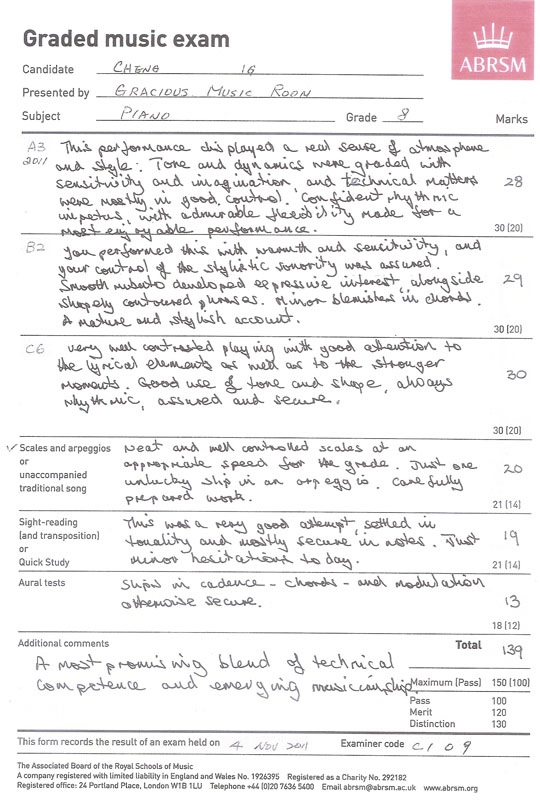 Graded music exam
ABRSM
Candidate CHENG 16
Presented by GRACIOUS MUSIC ROOM
Subject PIANO Grade 8 Marks
A3 This performance displayed a real sense of atmosphere
2011 and style. Tone and dynamics were graded with
sensitivity and imagination, and technical matters
were mostly in good control. Confident rhythmic
impetus, with admirable flexibility made for a
most enjoyable performance.
28
30 (20)
B2 You performed this with warmth and sensitivity, and
your control of the stylistic sonority was assured.
Smooth rubato developed expressive interest, alongside
shapely contoured phrases. Minor blemishes in chords.
A mature and stylish account.
29
30 (20)
C6 Very well contrasted playing with good attention to
the lyrical elements as well as to the stronger
moments. Good use of tone and shape, always
rhythmic, assured and secure.
30
30 (20)
Scales and arpeggios
or
unaccompanied
traditional song
Neat and well controlled scales at an
appropriate speed for the grade. Just one
unlucky slip in an arpeggio. Carefully
prepared work.
20
21 (14)
Sight-reading
(and transposition)
or
Quick Study
This was a very good attempt, settled in
tonality and mostly secure in notes. Just
minor hesitations today.
19
21 (14)
Aural tests
Slips in cadence - chords - and modulation
otherwise secure.
13
18 (12)
Additional comments
A most promising blend of technical
competence and emerging musicianship.
Total 139
Maximum (Pass) 150 (100)
Pass 100
Merit 120
Distinction 130
This form records the result of an exam held on 4 NOV 2011 Examiner code C109
The Associated Board of the Royal Schools of Music
A company registered with limited liability in England and Wales No. 1926395 Registered as a Charity No. 292182
Registered office: 24 Portland Place, London W1B 1LU Telephone +44 (0)20 7636 5400 Email abrsm@abrsm.ac.uk www.abrsm.org